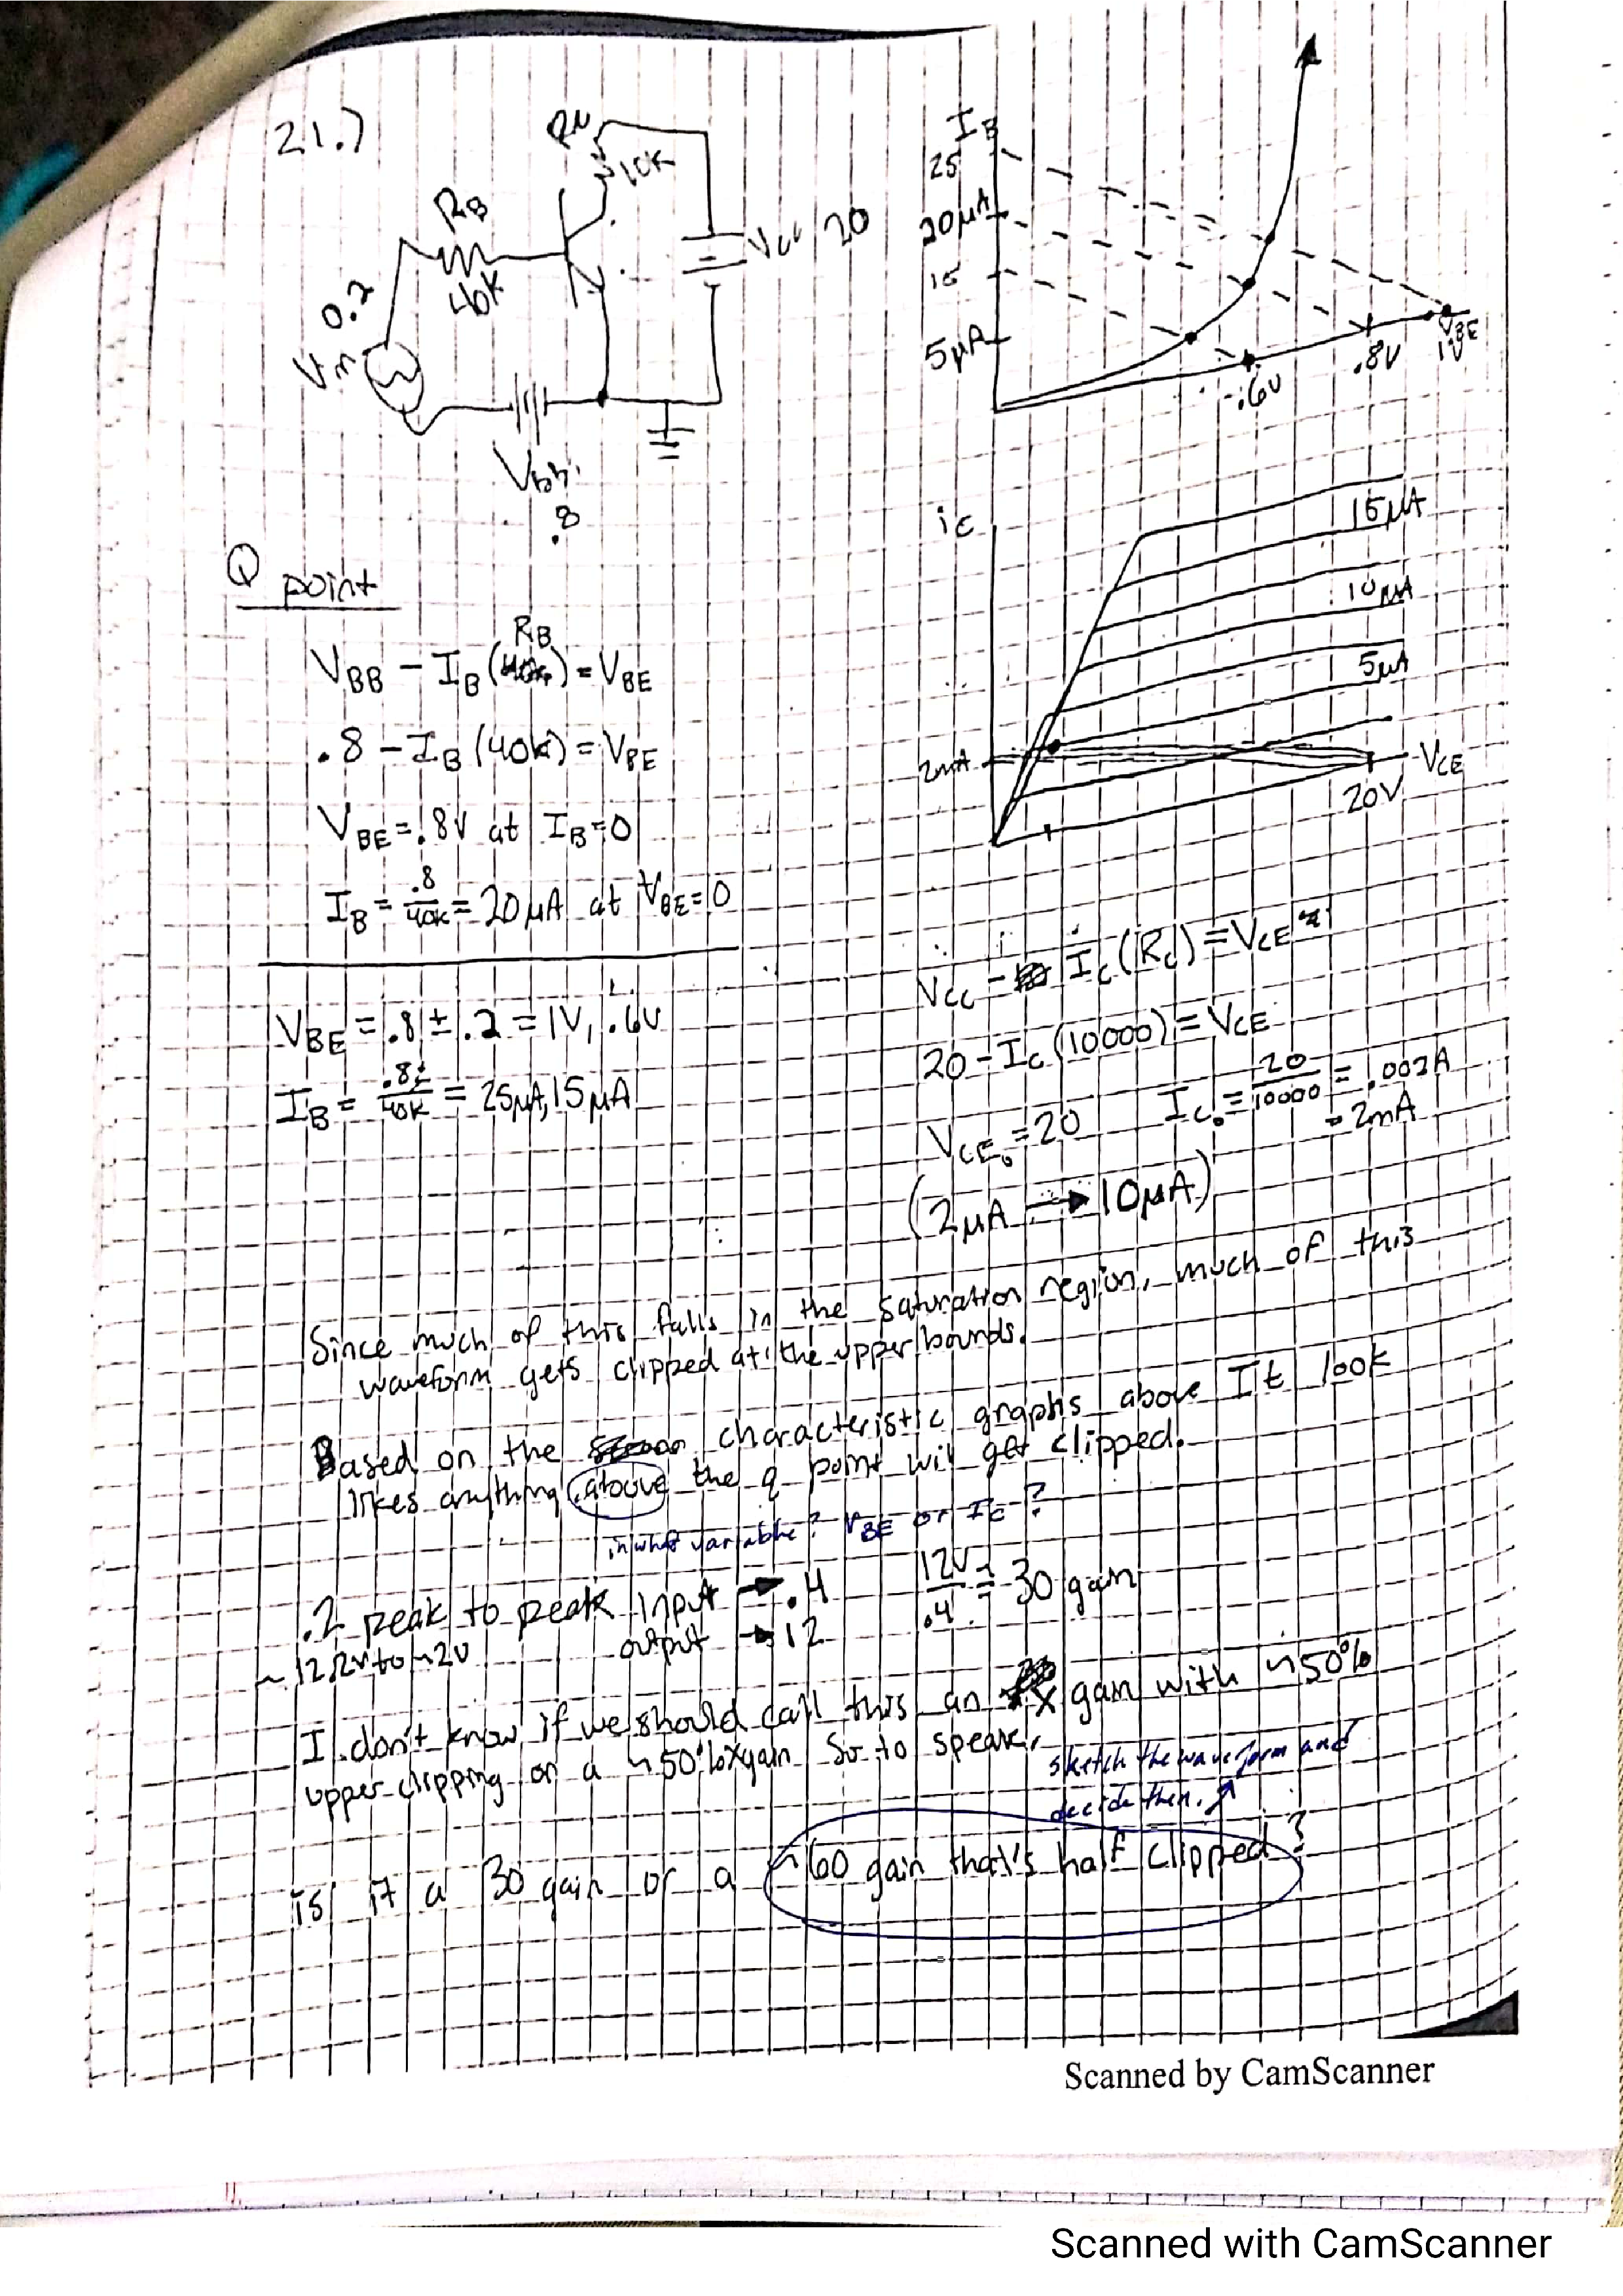 21.)
RL
10K
RB
40K
Vcc 20
0.2
Vin
Vbb
.8
IB
25
20μA
15
5μA
.6V
.8V
VBE
1V
Q point
VBB - IB(RB) = VBE
.8 - IB(40k) = VBE
VBE = .8V at IB=0
IB = .8/40K = 20μA at VBE=0
VBE = .8 ± .2 = 1V, .6V
IB = .8±/40K = 25μA, 15μA
ic
15μA
10μA
5μA
2mA
VCE
20V
VCC - IC(RC) = VCE
20 - IC(10000) = VCE
VCE0 = 20 IC0 = 20/10000 = .002A
= 2mA
(2μA → 10μA)
Since much of this falls in the saturation region, much of this
waveform gets clipped at the upper bounds.
Based on the characteristic graphs above It look
likes anything above the q point wil get clipped.
in what variable? VBE or IC?
.2 peak to peak input → .4 12V/.4 = 30 gain
~12 V to ~2V output → 12
I don't know if we should call this an X gain with ~50%
upper clipping or a ~50% X gain So to speak.
sketch the waveform and
decide then.
is it a 30 gain or a ~60 gain that's half clipped?
Scanned by CamScanner
Scanned with CamScanner